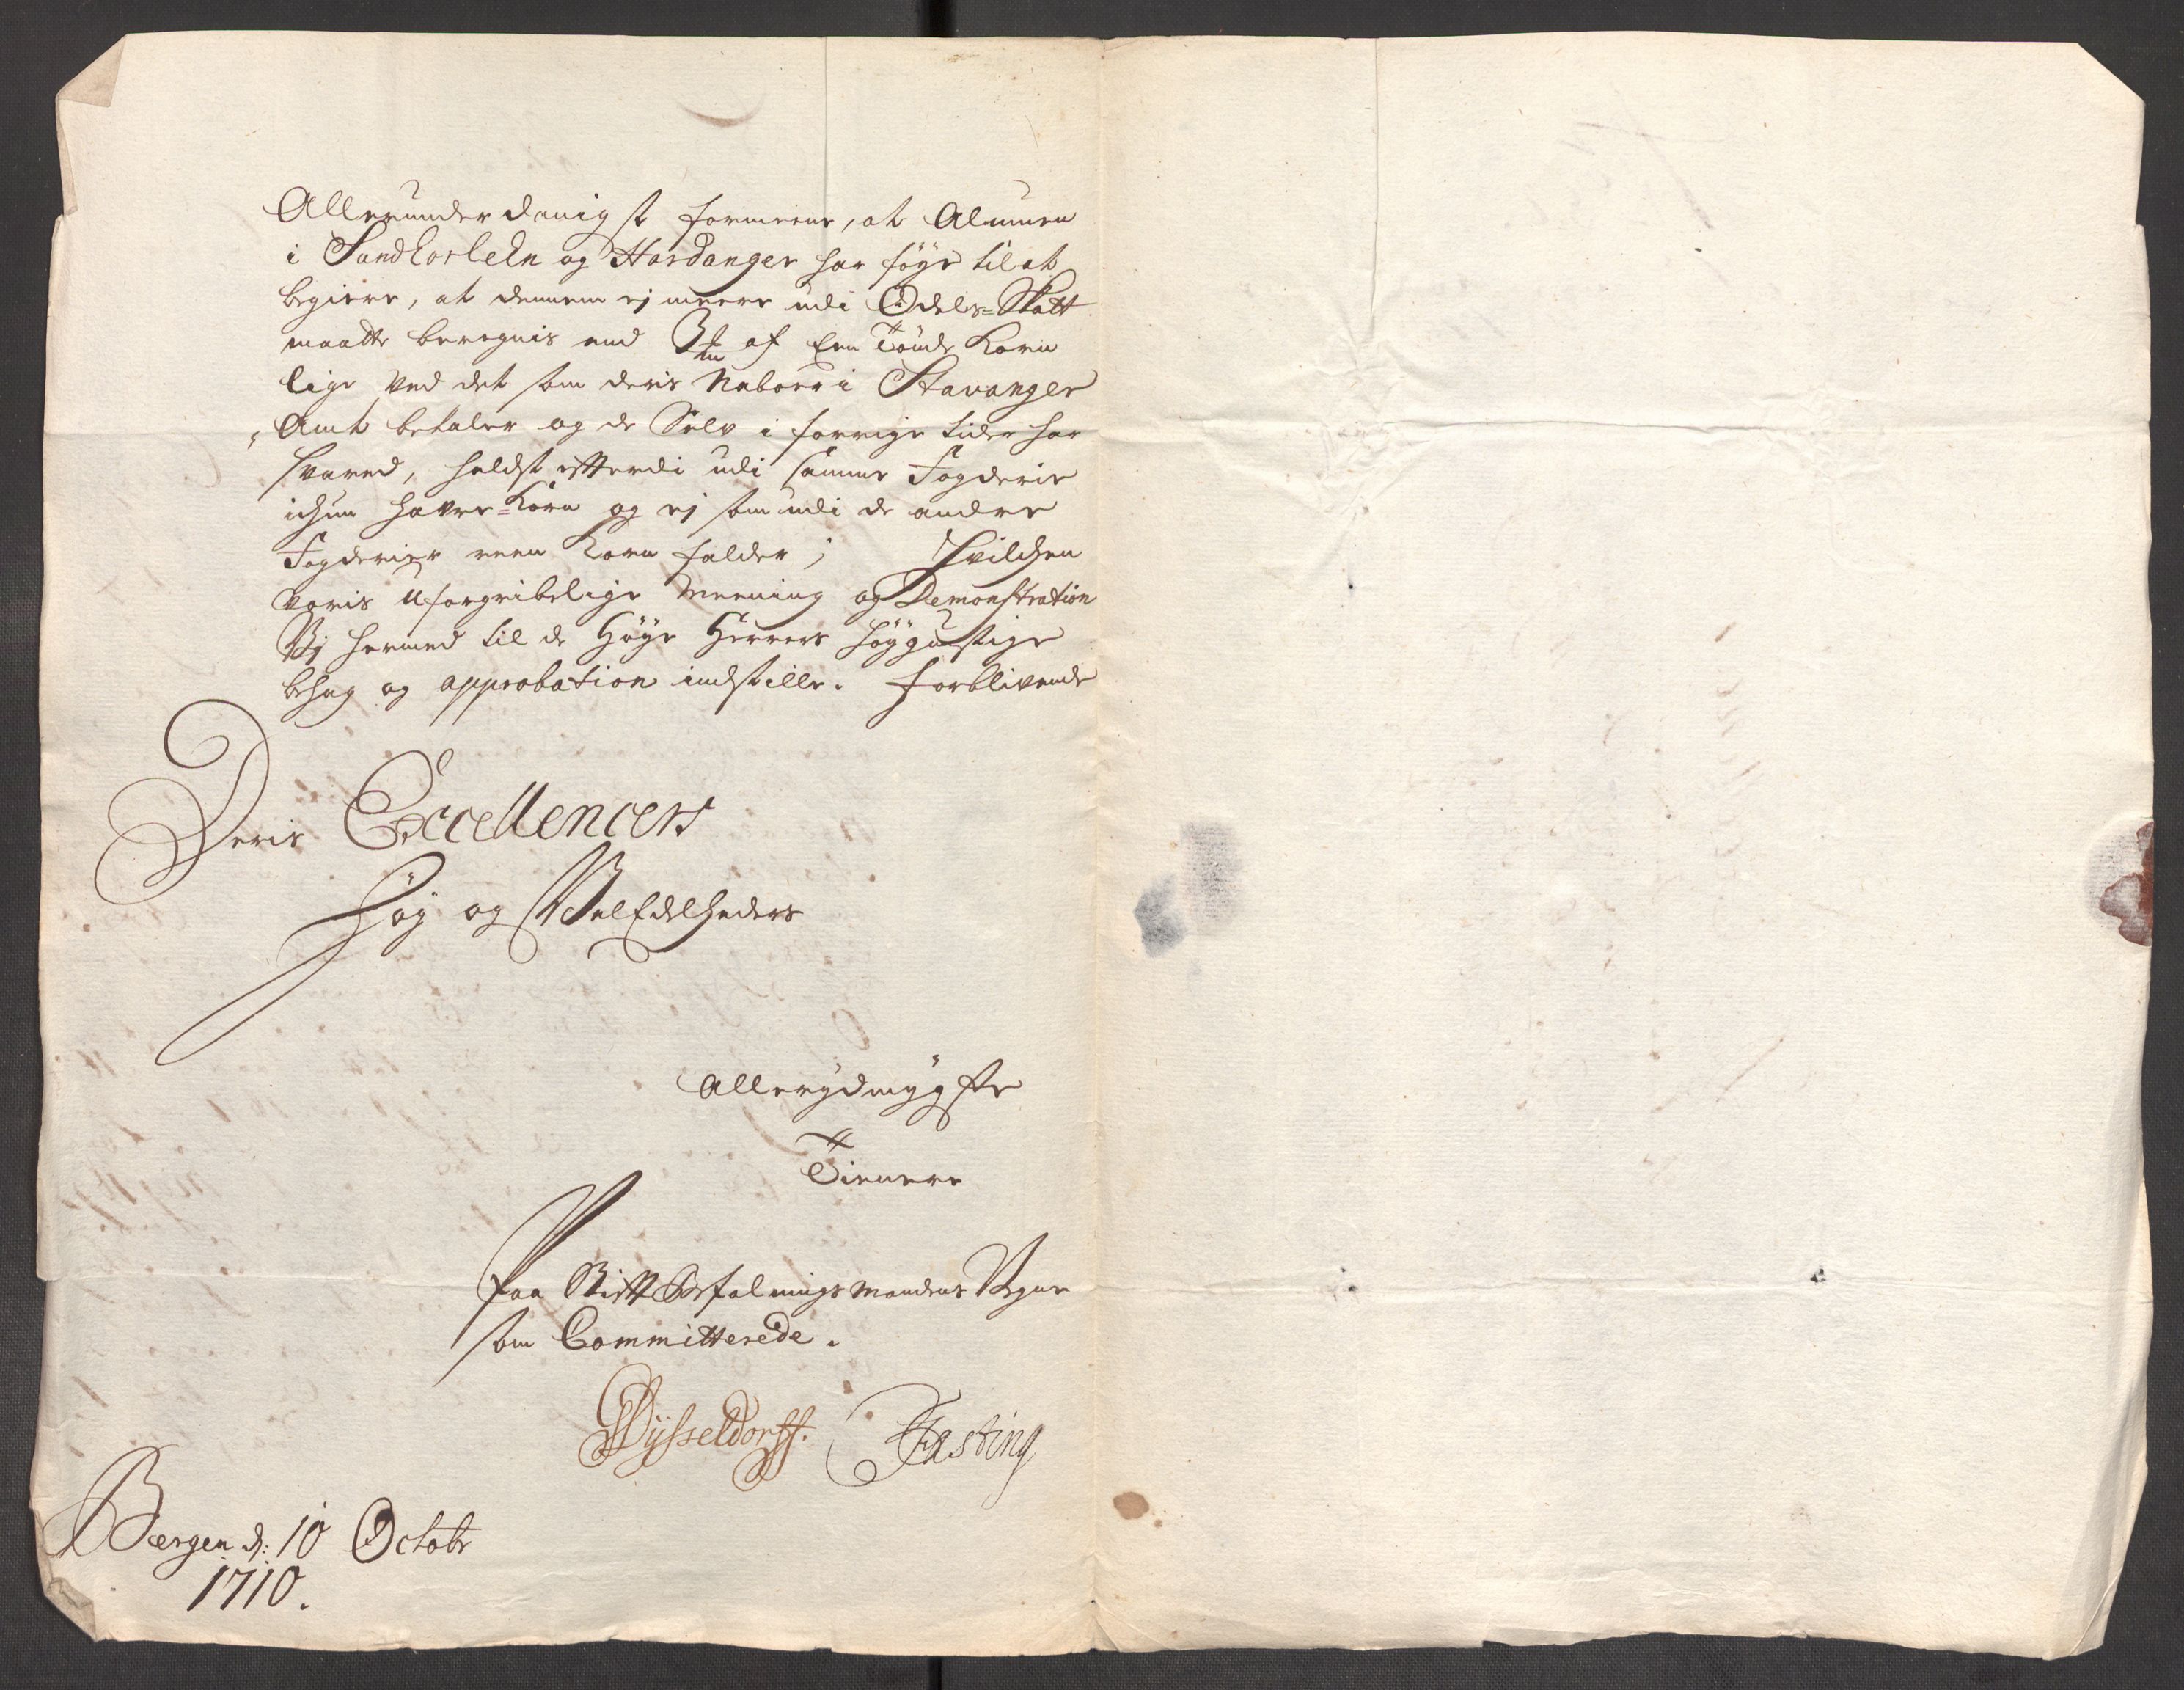 Allerunderdanigst formeene, at Almuen
i Sundhorlehn og Hardanger har föye til at
begiere, at dennem ej meere udi Odels-Skatt
maatte beregnis end af Een Tönde Korn
lige ved det som deris Naboer i Stavanger
Amt betaler og de Selv i forrige tider har
svared, heldst efterdi udi samme Fogderie
ichun havre-Korn og ej som udi de andre
Fogderier reen Korn falder; Hvilchen
voris Uforgribelige Meening og Demonstration
Vj hermed til de Höye Herrers höygunstige
behag og approbation indstille. forblivende
Deris Excellencers
Höy og VelEdelheders
Allerydmygste
Tienere
Paa Stiftbefalningsmandens Vegne
som Committerede.
Düsseldorff. Fasting
Bergen d: 10 Octobr
1710.